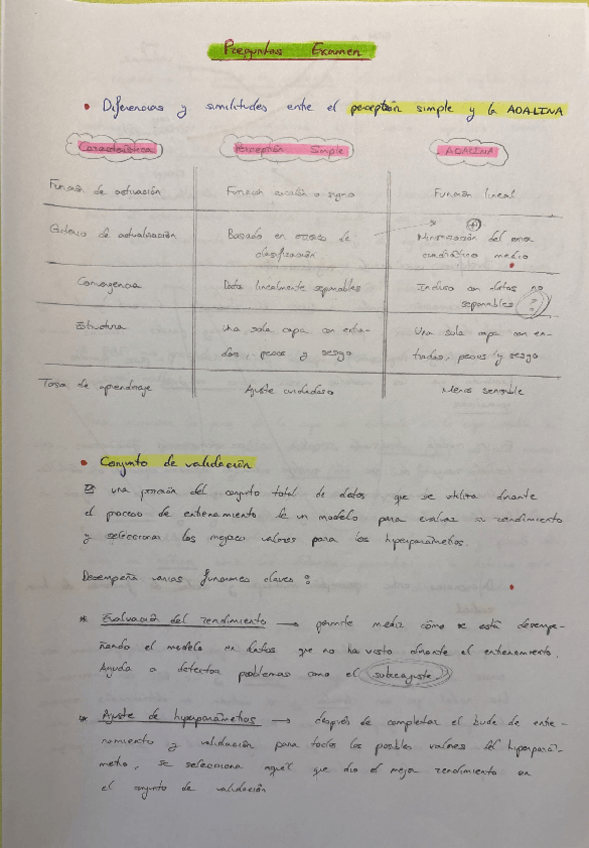 Preguntas Examen
• Diferencias y similitudes entre el perceptrón simple y la ADALINA
Característica Perceptrón Simple ADALINA
Función de activación Función escalón o signo Función lineal
Criterio de actualización Basado en errores de Minimización del error
clasificación cuadrático medio
Convergencia Datos linealmente separables Incluso con datos no
separables
Estructura Una sola capa con entra- Una sola capa con en-
das, pesos y sesgo tradas, pesos y sesgo
Tasa de aprendizaje Ajuste cuidadoso Menos sensible
• Conjunto de validación
Es una porción del conjunto total de datos que se utiliza durante
el proceso de entrenamiento de un modelo para evaluar su rendimiento
y seleccionar los mejores valores para los hiperparámetros.
Desempeña varias funciones claves:
* Evaluación del rendimiento → permite medir cómo se está desempe-
ñando el modelo en datos que no ha visto durante el entrenamiento.
Ayuda a detectar problemas como el sobreajuste.
* Ajuste de hiperparámetros → después de completar el bucle de entre-
namiento y validación para todos los posibles valores del hiperpará-
metro, se selecciona aquel que dio el mejor rendimiento en
el conjunto de validación